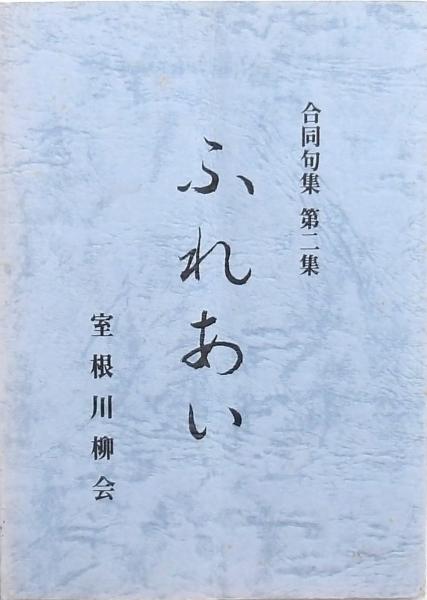 合同句集 第二集
ふれあい
室根川柳会